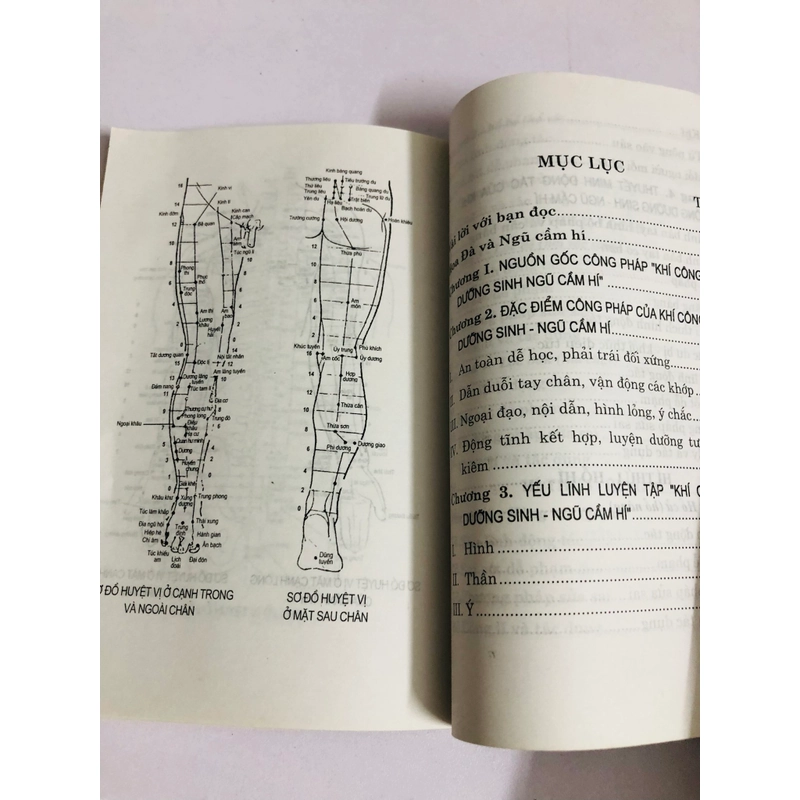 Kinh vị
Kinh tì
Kinh đởm
Kinh can
Cấp mạch
Bễ quan
Âm liêm
Túc ngũ lí
Phong thị
Phục thố
Trung độc
Âm thị
Lương khâu
Huyết hải
Âm bao
Tất dương quan
Độc tị
Nội tất nhãn
Âm lăng tuyền
Dương lăng tuyền
Đảm nang
Túc tam lí
Địa cơ
Thượng cự hư
Phong long
Trung đô
Ngoại khâu
Điều khẩu
Hạ cự hư
Quang minh
Dương phụ
Huyền chung
Giải khê
Khâu khư
Trung phong
Xung dương
Túc lâm khấp
Thái xung
Địa ngũ hội
Trung đình
Hiệp hê
Hành gian
Chí âm
Ẩn bạch
Túc khiếu âm
Lịch đoài
Đại đôn
18 16 14 12 10 8 6 4 2 0
SƠ ĐỒ HUYỆT VỊ Ở CẠNH TRONG
VÀ NGOÀI CHÂN
Kinh bàng quang
Thượng liêu
Tiểu trường du
Thứ liêu
Bàng quang du
Trung liêu
Trung lữ du
Hạ liêu
Trật biên
Bạch hoàn du
Trường cường
Hội dương
Hoàn khiêu
Thừa phù
Ân môn
Phù khích
Khúc tuyền
Ủy trung
Âm cốc
Ủy dương
Hợp dương
Thừa cân
Thừa sơn
Phi dương
Dương giao
Dũng tuyền
SƠ ĐỒ HUYỆT VỊ
Ở MẶT SAU CHÂN
MỤC LỤC
lời với bạn đọc
Đà và Ngũ cầm hí
Chương I. NGUỒN GỐC CÔNG PHÁP "KHÍ CÔNG
DƯỠNG SINH NGŨ CẦM HÍ"
Chương 2. ĐẶC ĐIỂM CÔNG PHÁP CỦA KHÍ CÔNG
DƯỠNG SINH - NGŨ CẦM HÍ
I. An toàn dễ học, phải trái đối xứng
II. Dẫn duỗi tay chân, vận động các khớp
III. Ngoại đạo, nội dẫn, hình lỏng, ý chắc
IV. Động tĩnh kết hợp, luyện dưỡng
kiêm
Chương 3. YẾU LĨNH LUYỆN TẬP "KHÍ
DƯỠNG SINH - NGŨ CẦM HÍ"
I. Hình
II. Thần
III. Ý